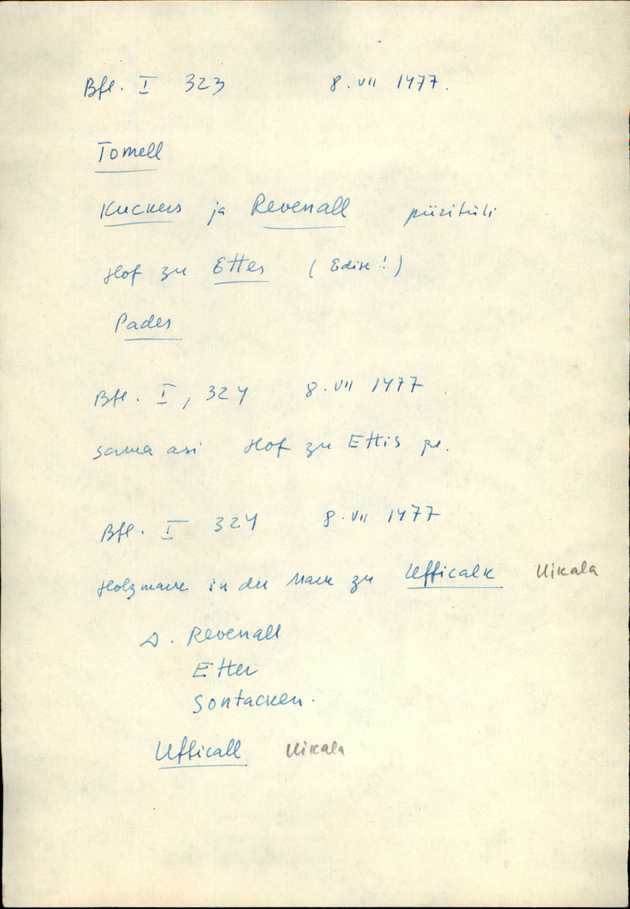 Bfl. I 323 8. VII 1477.
Tomell
Kuckers ja Revenall piiritüli
Hof zu Ettes (Edise!)
Pades
Bfl. I, 324 8. VII 1477
sama asi Hof zu Ettis
Bfl. I 324 8. VII 1477
Holzmark in der Mark zu Ufficalk Uikala
D. Revenall
Etter
Sontacken.
Ufficall Uikala